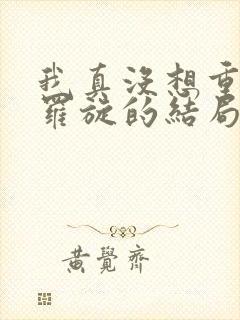 我真没想重
羅旋的結局
黄覺齊